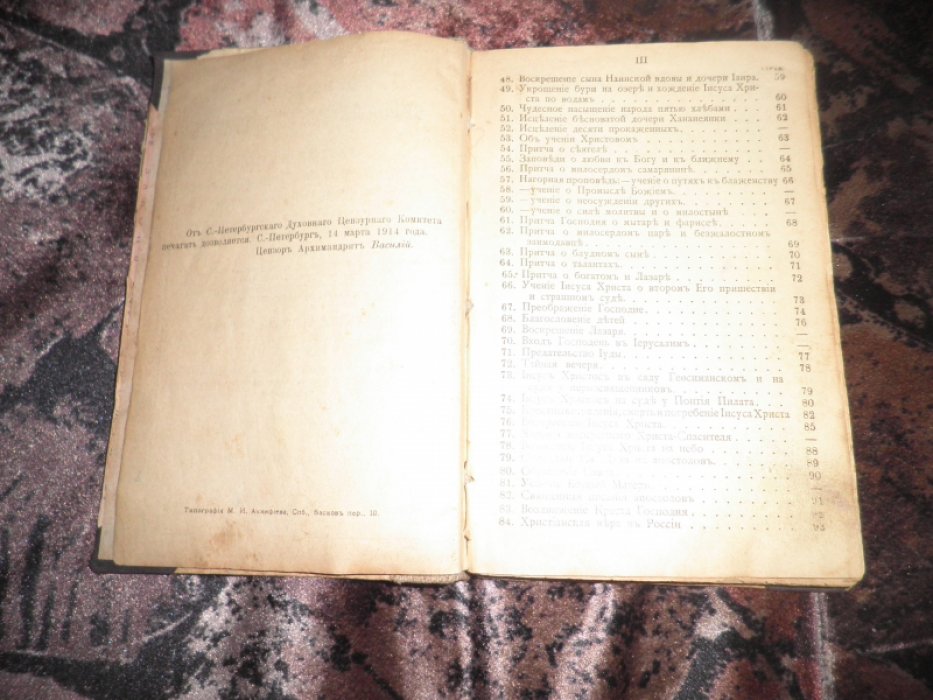 Отъ С.-Петербургскаго Духовнаго Цензурнаго Комитета
печатать дозволяется. С.-Петербургъ, 14 марта 1914 года.
Цензоръ Архимандритъ Василій.
Типографія М. И. Акинфіева, Спб., Басковъ пер.,
III
48. Воскрешеніе сына Наинской вдовы и дочери Іаира. 59
49. Укрощеніе бури на озерѣ и хожденіе Іисуса Хри-
ста по водамъ 60
50. Чудесное насыщеніе народа пятью хлѣбами 61
51. Исцѣленіе бѣсноватой дочери Хананеянки 62
52. Исцѣленіе десяти прокаженныхъ —
53. Объ ученіи Христовомъ 63
54. Притча о сѣятелѣ —
55. Заповѣди о любви къ Богу и къ ближнему 64
56. Притча о милосердомъ самарянинѣ 65
57. Нагорная проповѣдь:—ученіе о путяхъ къ блаженству 66
58. —ученіе о Промыслѣ Божіемъ —
59. —ученіе о неосужденіи другихъ 67
60. —ученіе о силѣ молитвы и о милостынѣ —
61. Притча Господня о мытарѣ и фарисеѣ 68
62. Притча о милосердомъ царѣ и безжалостномъ
заимодавцѣ 69
63. Притча о блудномъ сынѣ 70
64. Притча о талантахъ 71
65. Притча о богатомъ и Лазарѣ 72
66. Ученіе Іисуса Христа о второмъ Его пришествіи
и страшномъ судѣ 73
67. Преображеніе Господне 74
68. Благословеніе дѣтей 76
69. Воскрешеніе Лазаря —
70. Входъ Господень въ Іерусалимъ —
71. Предательство Іуды 77
72. Тайная вечеря 78
73. Іисусъ Христосъ въ саду Геѳсиманскомъ и на
судѣ у первосвященниковъ 79
74. Іисусъ Христосъ на судѣ у Понтія Пилата 80
75. смерть и погребеніе Іисуса Христа 82
76. Іисуса Христа 85
77. Христа-Спасителя —
78. Іисуса Христа на небо 88
79. на апостоловъ 89
80. 90
81. Божіей Матери —
82. апостоловъ 91
83. Воздвиженіе Креста Господня 92
84. Христіанская вѣра въ Россіи 93